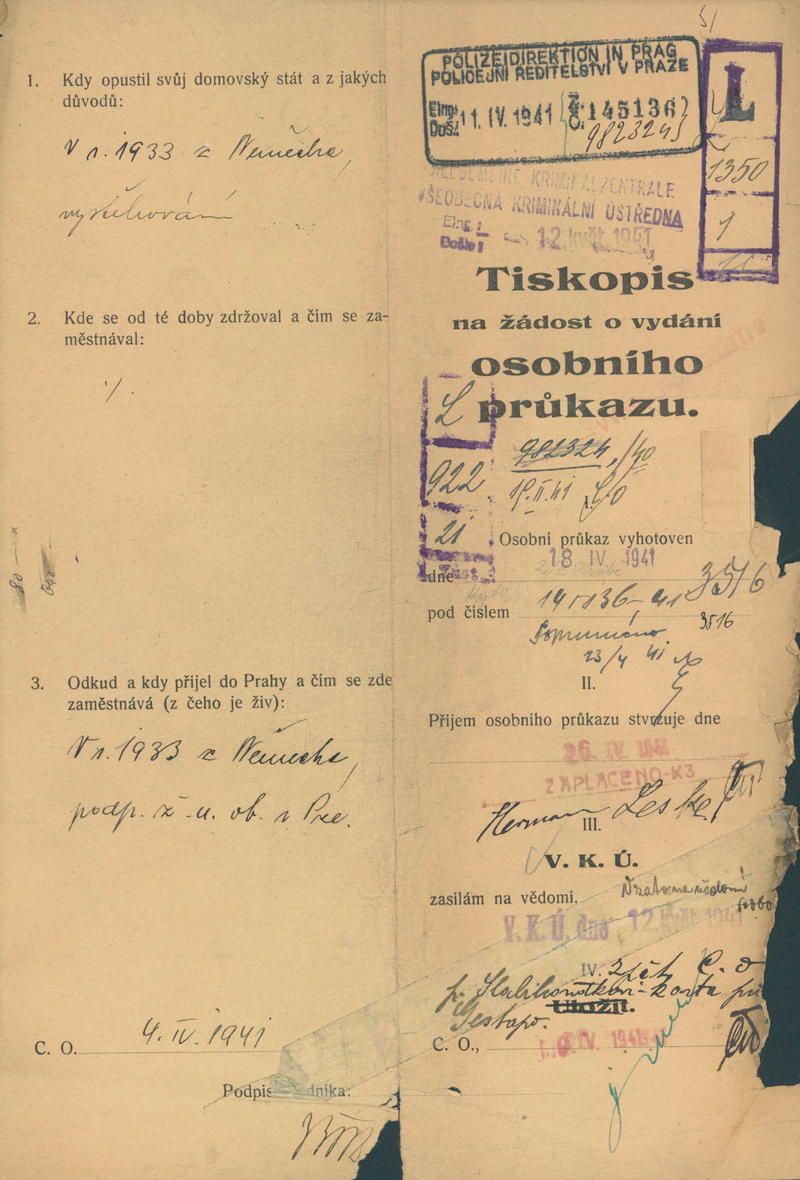 1. Kdy opustil svůj domovský stát a z jakých
důvodů:
V r. 1933 z Německa,
vystěhování
2. Kde se od té doby zdržoval a čím se za-
městnával:
/.
3. Odkud a kdy přijel do Prahy a čím se zde
zaměstnává (z čeho je živ):
V r. 1933 z Německa,
podp. ž. u. ob. v Pze.
C. O. 4. IV. 1941
Podpis
POLIZEIDIREKTION IN PRAG
POLICEJNÍ ŘEDITELSTVÍ V PRAZE
Eing.
Doš. 11. IV. 1941 Z. Č. 145136
9823245
ALLGEMEINE KRIMINALZENTRALE
VŠEOBECNÁ KRIMINÁLNÍ ÚSTŘEDNA
Eing.:
Došlo: 12. květ. 1941
L
1350
1
Tiskopis
na žádost o vydání
osobního
průkazu.
L
922
21
982324/40
19.II.41
Osobní průkaz vyhotoven
dne 18 IV. 1941
pod číslem 145136-41 3516
3516
23/4 41
II.
Příjem osobního průkazu stvrzuje dne
26. IV. 1941
ZAPLACENO-K3
Herman Leske
III.
V. K. Ú.
zasílám na vědomí.
V. K. Ú. dne 12. květ. 1941
IV. Zpět C. O.
karta při
Uložit.
Gestapo.
C. O., IV. 1941